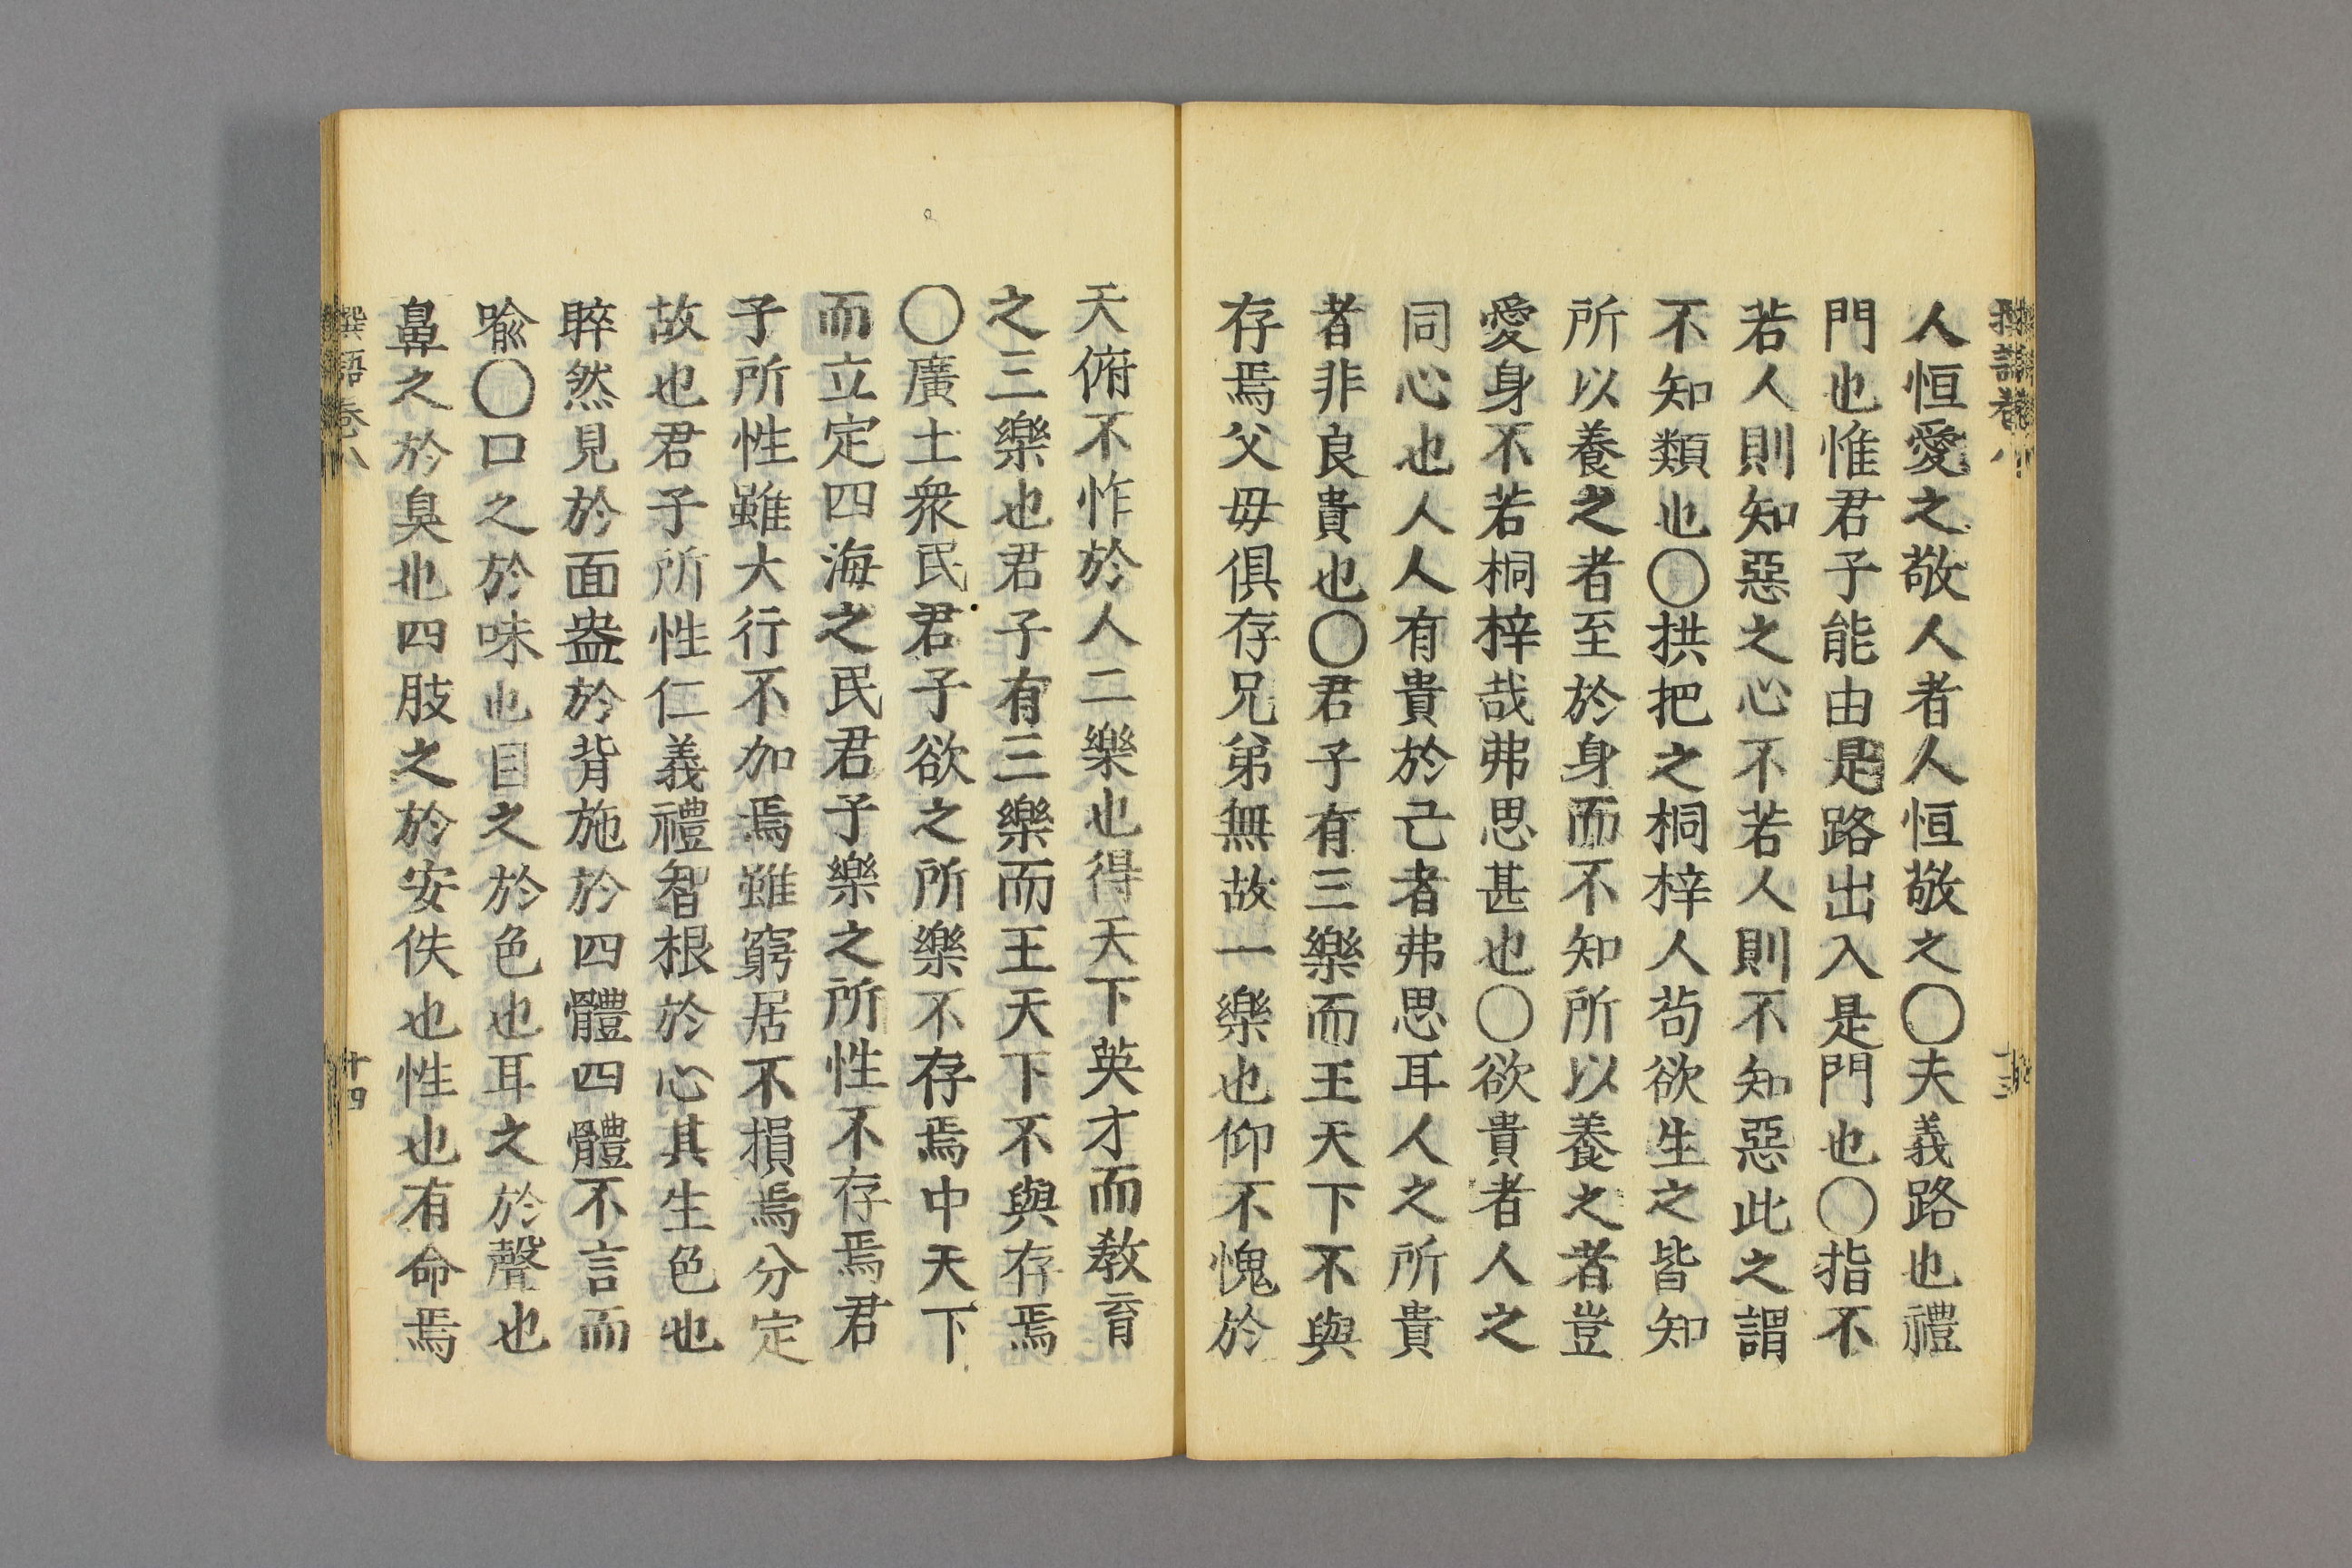 人恒愛之敬人者人恒敬之〇夫義路也禮
門也惟君子能由是路出入是門也〇指不
若人則知惡之心不若人則不知惡此之謂
不知類也〇拱把之桐梓人茍欲生之皆知
所以養之者至於身而不知所以養之者豈
愛身不若桐梓哉弗思甚也〇欲貴者人之
同心也人人有貴於己者弗思耳人之所貴
者非良貴也〇君子有三樂而王天下不與
存焉父毋俱存兄弟無故一樂也仰不愧於
天俯不怍於人二樂也得天下英才而教育
之三樂也君子有三樂而王天下不與存焉
〇廣土衆民君子欲之所樂不存焉中天下
而立定四海之民君子樂之所性不存焉君
子所性雖大行不加焉雖窮居不損焉分定
故也君子所性仁義禮智根於心其生色也
睟然見於面盎於背施於四體四體不言而
喩〇口之於味也目之於色也耳之於聲也
鼻之於臭也四肢之於安佚也性也有命焉
撰語卷八
十四